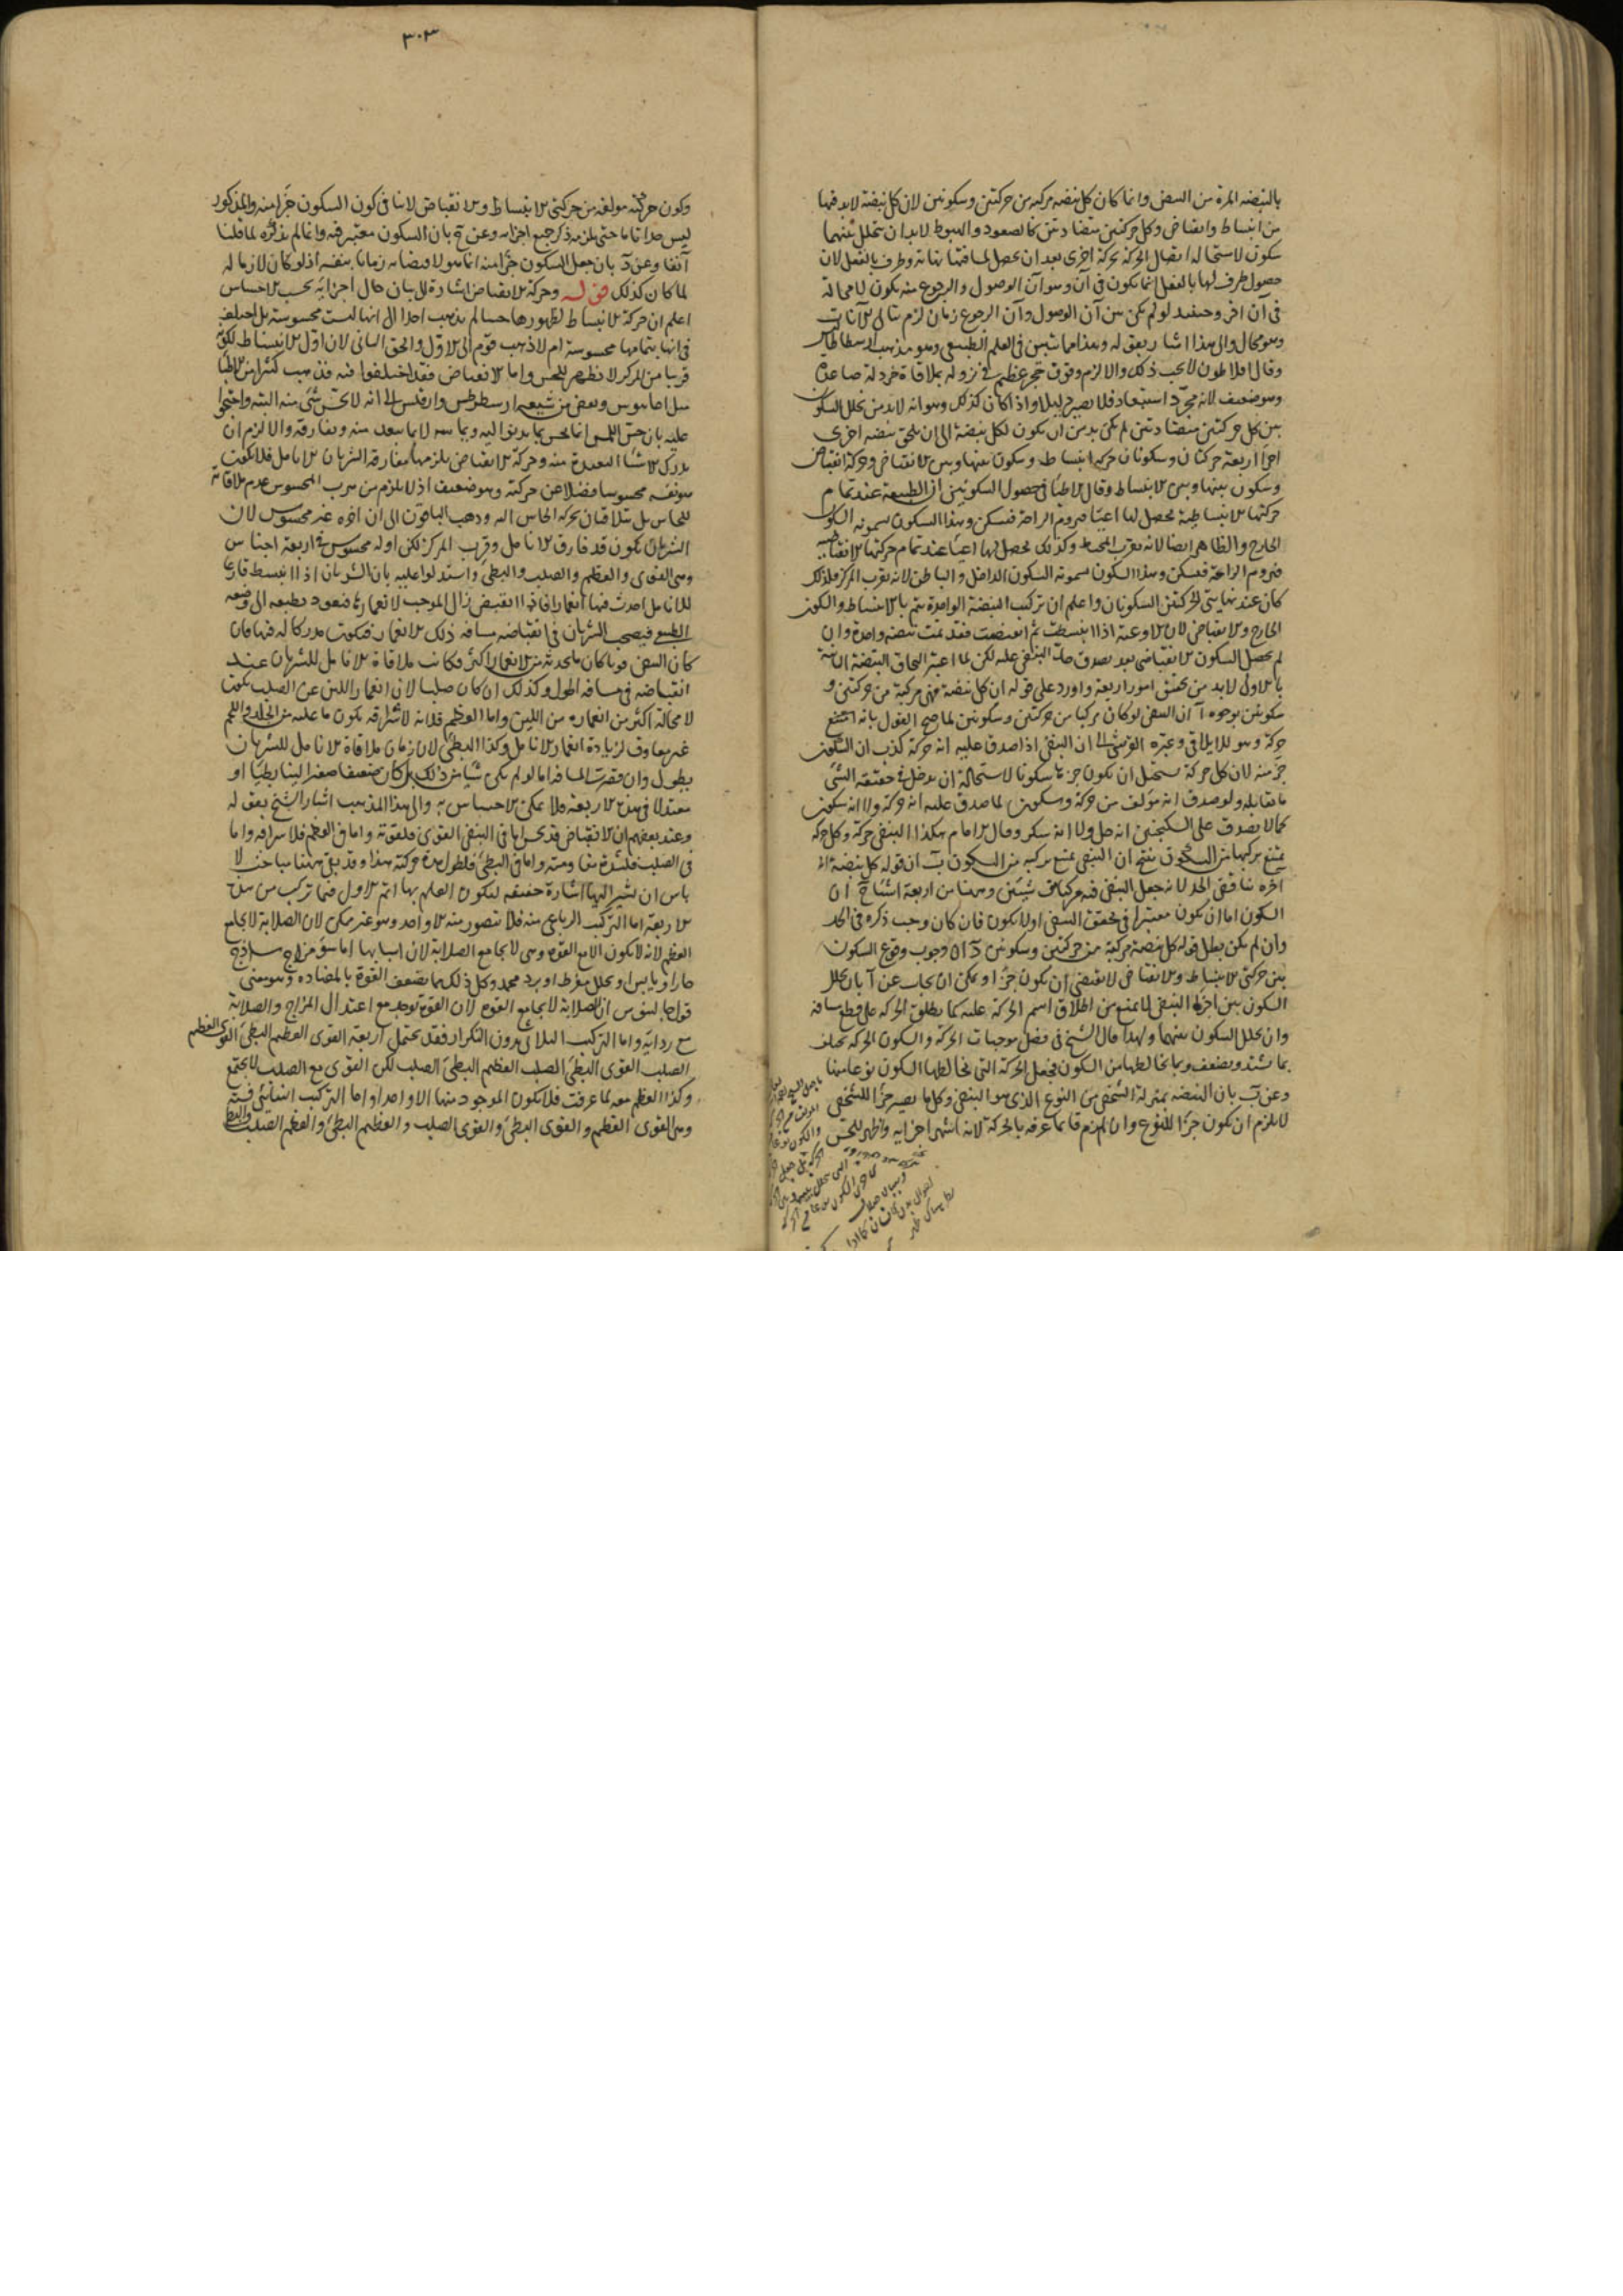 بالنبضة المرة من النبض وانما كان كل نبضة مركبة من حركتين وسكونين لان كل نبضة لابد فيها
من انبساط وانقباض وكل حركتين متضادتين كالصعود والهبوط لابد ان يتخلل بينهما
سكون لاستحالة اتصال الحركة بحركة اخرى بعد ان يحصل لمسافتها نهاية وطرف بالفعل لان
حصول طرف لها بالفعل انما يكون في آن وهو آن الوصول والرجوع منه يكون لا محالة
في آن آخر وحينئذ لو لم يكن بين آن الوصول وآن الرجوع زمان لزم تتالي الآنات
وهو محال والى هذا اشار بقوله وهذا مما يتبين في العلم الطبيعي وهو مذهب ارسطاطاليس
وقال افلاطون لا يجب ذلك والا لزم وقوف حجر عظيم في نزوله بملاقاة خردلة صاعدة
وهو ضعيف لانه مجرد استبعاد فلا يصير دليلا واذا كان كذلك وهو انه لابد من تخلل السكون
بين كل حركتين متضادتين لم يكن بد من ان يكون لكل نبضة الى ان يلحق نبضة اخرى
اجزا اربعة حركتان وسكونان حركة انبساط وسكون بينها وبين الانقباض وحركة انقباض
وسكون بينها وبين الانبساط وقال الاطبا في حصول السكونين ان الطبيعة عند تمام
حركتها الانبساطية يحصل لها اعيا فتروم الراحة فتسكن وهذا السكون يسمونه السكون
الخارج والظاهر ايضا لانه بقرب المحيط وكذلك يحصل لها اعيا عند تمام حركتها الانقباضية
فتروم الراحة فتسكن وهذا السكون يسمونه السكون الداخل والباطن لانه بقرب المركز فلذلك
كان عند نهايتي الحركتين السكونان واعلم ان تركيب النبضة الواحدة يتم بالانبساط والسكون
الخارج والانقباض لان الاوعية اذا انبسطت ثم انقبضت فقد تمت نبضة واحدة وان
لم يحصل السكون الانقباضي بعد يصدق حد النبض عليه لكن لما اعتبر التحاق النبضة الثانية
بالاولى لابد من تحقق امور اربعة واورد على قوله ان كل نبضة فهي مركبة من حركتين و
سكونين بوجوه آ ان النبض لو كان مركبا من حركتين وسكونين لما صح القول بانه
حركة وهو للايلاقي وعبره القرشي الى ان النبض اذا صدق عليه انه حركة كذب ان السكون
جزء منه لان كل حركة يستحيل ان يكون جزءها سكونا لاستحالة ان يدخل في حقيقة الشئ
ما يقابله ولو صدق انه مؤلف من حركة وسكون لما صدق عليه انه حركة ولا انه سكون
كما لا يصدق على السكنجبين انه خل ولا انه سكر وقال الامام هكذا النبض حركة وكل حركة
يمتنع تركبها من السكون ينتج ان النبض يمتنع تركبه من السكون ب ان قوله كل نبضة الى
آخره يناقض الحد لانه جعل النبض فيه مركبا من شيئين وههنا من اربعة اشيا ج ان
السكون اما ان يكون معتبرا في تحقق النبض اولا يكون فان كان وجب ذكره في الحد
وان لم يكن بطل قوله كل نبضة مركبة من حركتين وسكونين د ان وجوب وقوع السكون
بين حركتي الانبساط والانقباض لا يقتضي ان يكون جزا ويمكن ان يجاب عن آ بان تخلل
السكون بين اجزاء النبض لا يمنع من اطلاق اسم الحركة عليه كما يطلق الحركة على قطع مسافة
وان تخلل السكون بينهما ولهذا قال الشيخ في فصل موجبات الحركة والسكون الحركة تختلف
بما يشتد ويضعف وبما يخالطها من السكون فجعل الحركة التي يخالطها السكون نوعا منها
وعن ب بان النبضة بمنزلة الشخص من النوع الذي هو النبض وكل ما يصير جزا للشخص
لا يلزم ان يكون جزا للنوع وان لم يلزم فانما عرفه بالحركة لانه اشهر اجزايه واظهر للحس
٣٠٣
وكون حركته مولفة من حركتي الانبساط والانقباض لا ينافي كون السكون جزا منه والمذكور
ليس حدا تاما حتى يلزمه ذكر جميع اجزايه وعن ج بان السكون معتبر فيه وانما لم يذكره لما قلنا
آنفا وعن د بان جعل السكون جزا منه انما هو لاقتضايه زمانا بنفسه اذ لو كان لازما له
لما كان كذلك قوله وحركة الانقباض اشارة الى بيان حال اجزايه بحسب الاحساس
اعلم ان حركة الانبساط لظهورها حسا لم يذهب احد الى انها ليست محسوسة بل اختلف
في انها بتمامها محسوسة ام لا ذهب قوم الى الاول والحق الثاني لان اول الانبساط لكونه
قريبا من المركز لا يظهر للحس واما الانقباض فقد اختلفوا فيه فذهب كثير من الاطبا
وبعض من شيعة ارسطوطلس الى انه لا يحس شئ منه البتة واحتجوا
عليه بان حس اللمس انما يحس بما يدنو اليه ويماسه لا بما يبعد منه ويفارقه والا لزم ان
يدرك الاشيا البعيدة منه وحركة الانقباض يلزمها مفارقة الشريان الانامل فلا يكون
موقفه محسوسا فضلا عن حركته وهو ضعيف اذ لا يلزم من هرب المحسوس عدم ملاقاته
للحاس بل يتلاقيان بحركة الحاس اليه وذهب الباقون الى ان آخره غير محسوس لان
الشريان يكون قد فارق الانامل وقرب المركز لكن اوله محسوس في اربعة اجناس
وهي القوي والعظيم والصلب والبطئ واستدلوا عليه بان الشريان اذا انبسط قارعا
للانامل احدث فيها انغمازا فاذا انقبض زال الموجب لانغمازها فتعود بطبعها الى وضعها
الطبيعي فيصحب الشريان في انقباضه مسافة ذلك الانغماز فيكون مدركا له فيها فان
كان النبض قويا كان ما يحدثه من الانغماز اكثر فكانت ملاقاة الانامل للشريان عند
انقباضه في مسافة اطول وكذلك ان كان صلبا لان انغماز اللين عن الصلب يكون
لا محالة اكثر من انغمازه من اللين واما العظيم فلانه لاشرافه يكون ما عليه من الجلد واللحم
غير معاوق لزيادة انغماز الانامل وكذا البطئ لان زمان ملاقاة الانامل للشريان
يطول وان قصرت المسافة اما لو لم يكن شيا من ذلك بل كان ضعيفا صغيرا لينا بطيا او
معتدلا في هذه الاربعة فلا يمكن الاحساس به والى هذا المذهب اشار الشيخ بقوله
وعند بعضهم ان الانقباض قد يحس اما في النبض القوي فلقوته واما في العظيم فلاشرافه واما
في الصلب فلشدة مقاومته واما في البطئ فلطول مدة حركته هذا وقد بقي ههنا مباحث لا
باس ان نشير اليها اشارة خفيفة ليكون العلم بها اتم الاول فيما تركب من هذه
الاربعة اما التركيب الرباعي منه فلا يتصور منه الا واحد وهو غير ممكن لان الصلابة لا تجامع
العظم لانه لا يكون الا مع القوة وهي لا تجامع الصلابة لان اسبابها اما سوء مزاج ساذج
حار او يابس او تحلل مفرط او برد مجمد وكل ذلك مما يضعف القوة بالمضادة وهو معنى
قول جالينوس ان الصلابة لا تجامع القوة لان القوة توجد مع اعتدال المزاج والصلابة
مع ردائه واما التركيب الثلاثي بدون التكرار فقد يحتمل اربعة القوي العظيم البطئ القوي العظيم
الصلب القوي البطئ الصلب العظيم البطئ الصلب لكن القوي مع الصلب لا يجتمع
وكذا العظيم معه لما عرفت فلا يكون الموجود منها الا واحدا واما التركيب الثنائي فستة
وهي القوي العظيم والقوي البطئ والقوي الصلب والعظيم البطئ والعظيم الصلب والبطئ